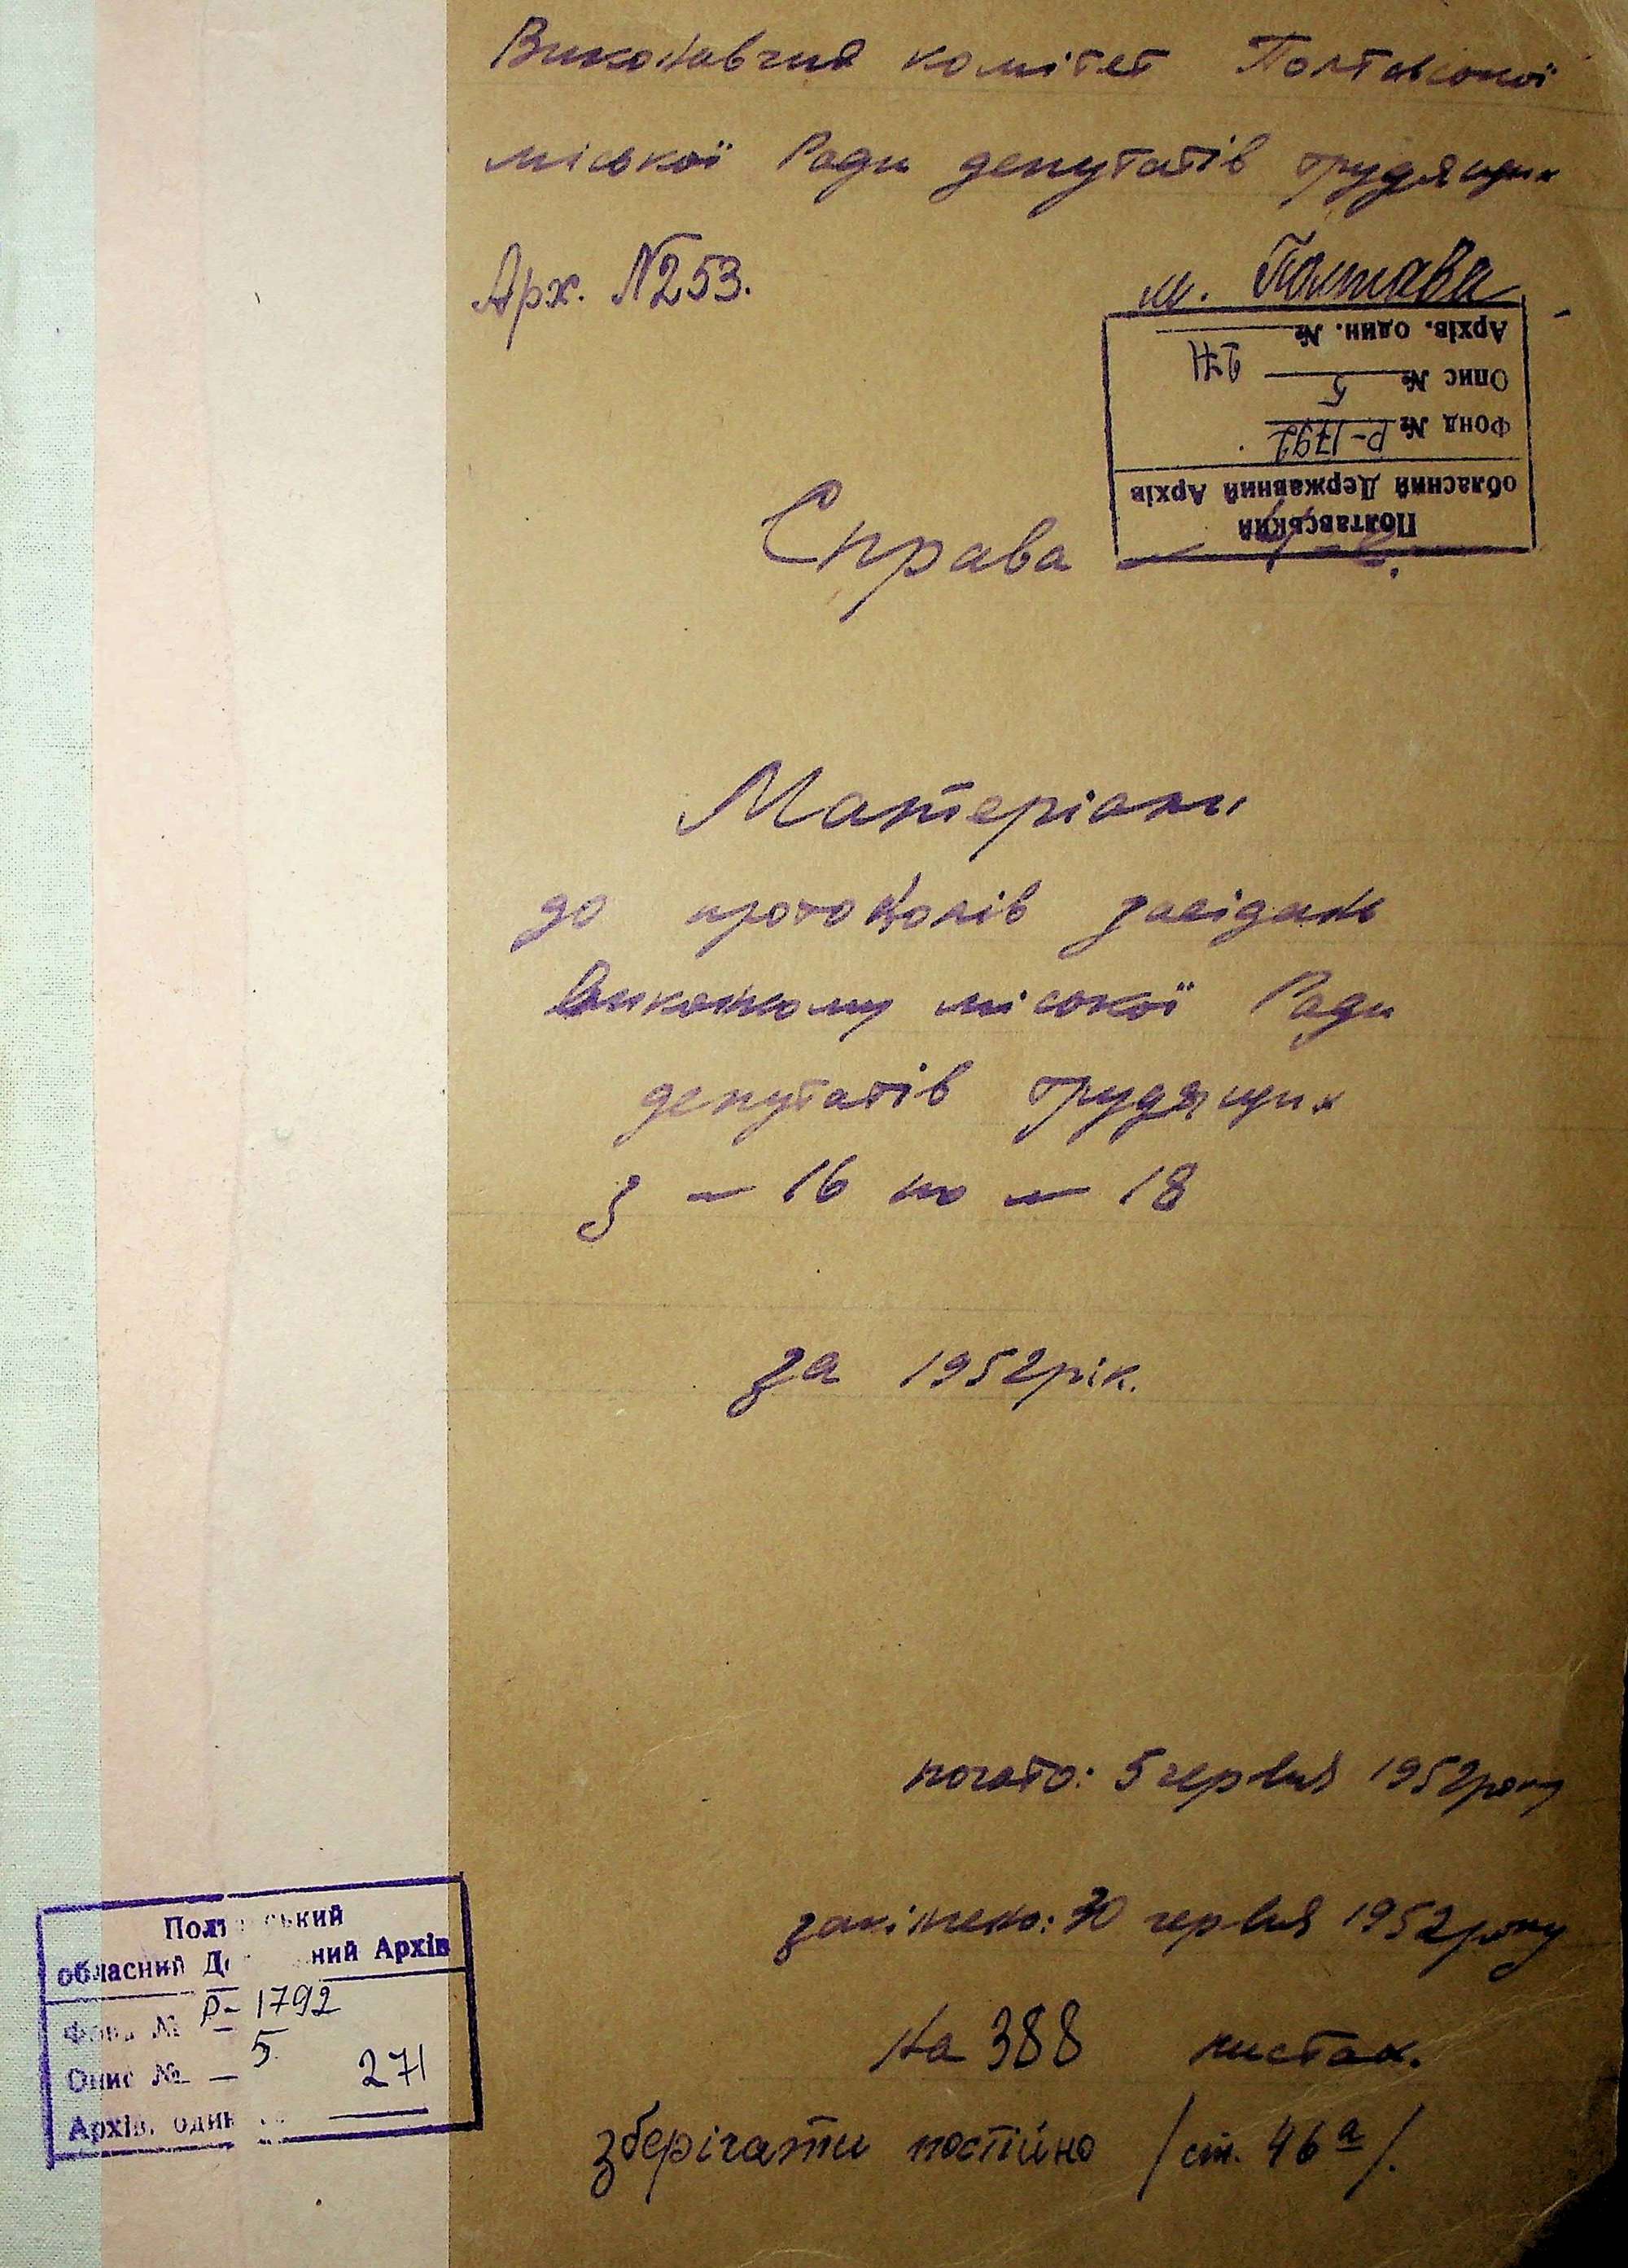 Виконавчий комітет Полтавської
міської Ради депутатів трудящих
Арх. №253.
м. Полтава
Архів. один. №
271
Опис № 5
Фонд № Р-1792
обласний Державний Архів
Полтавський
Справа
Матеріали
до протоколів засідань
Виконкому міської Ради
депутатів трудящих
з – 16 по – 18
за 1952 рік.
почато: 5 червня 1952 року
закінчено: 30 червня 1952 року
На 388 листах.
зберігати постійно /ст. 46а/.
обласний
ний Архів
Р-1792
Опис № 5
271
Архів.